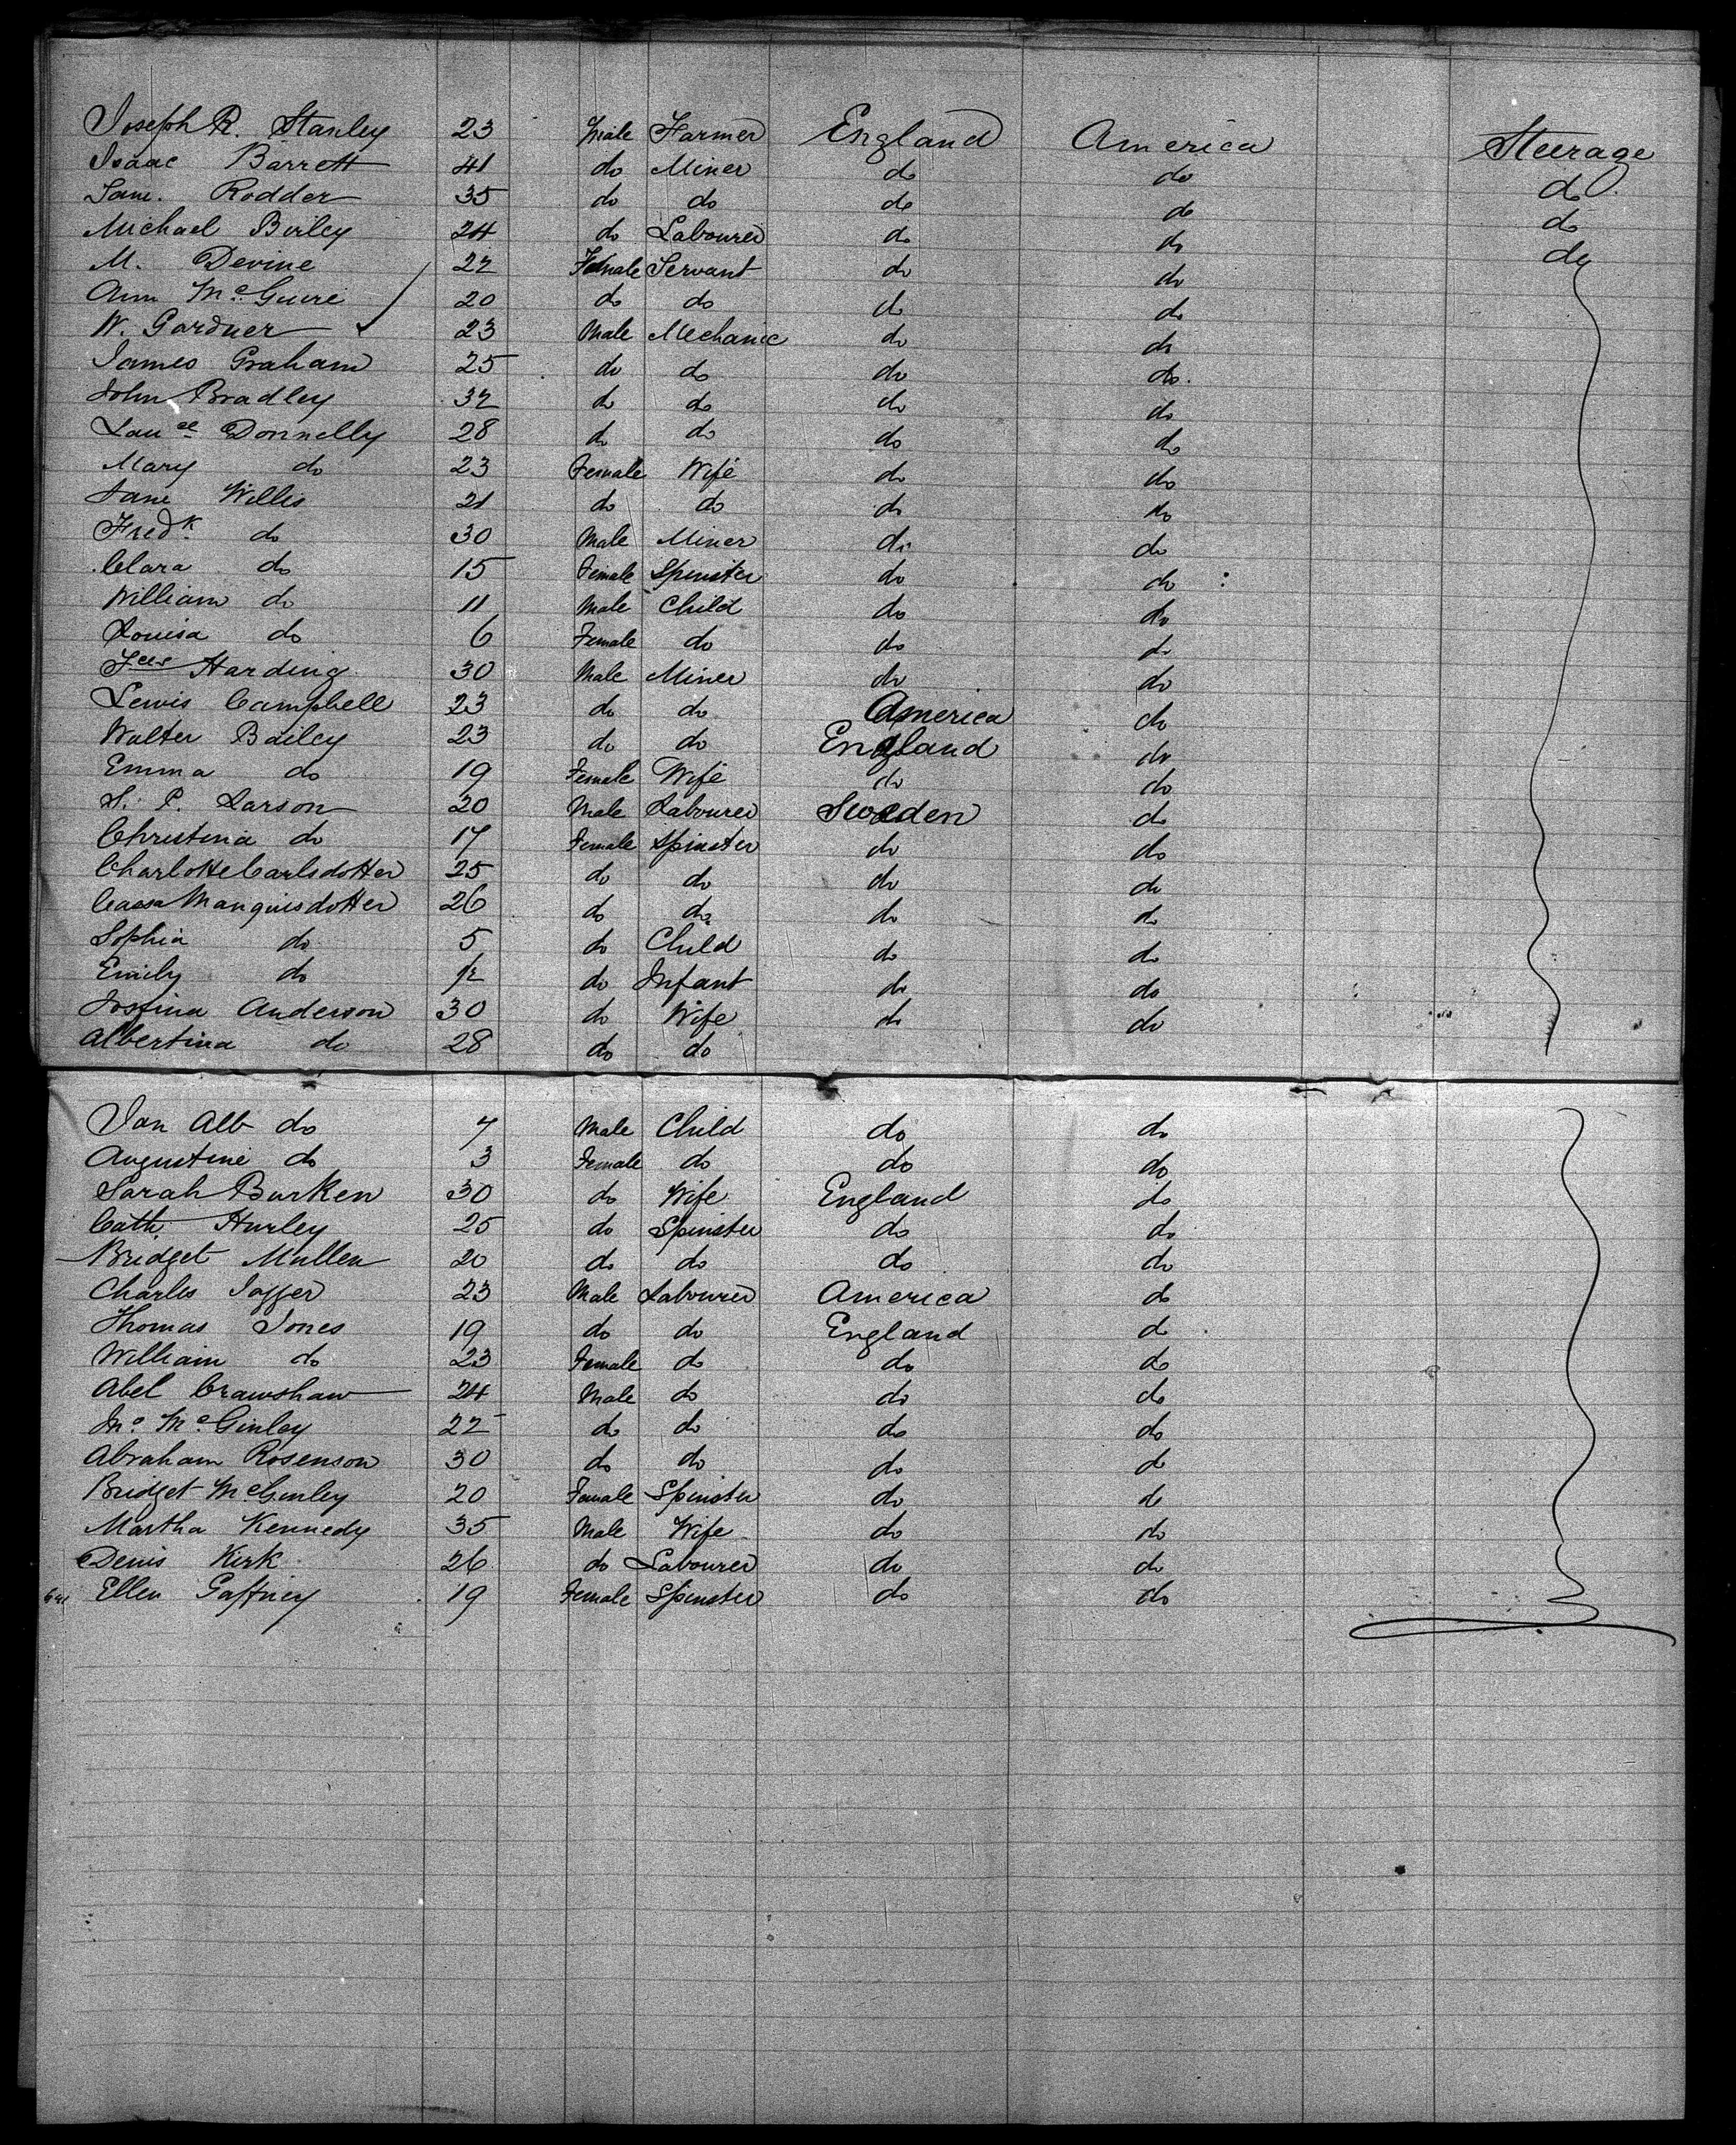 Joseph R. Stanley 23 Male Farmer England America Steerage
Isaac Barrett 41 do Miner do do do
Sam. Rodder 35 do do do do do
Michael Birley 24 do Labourer do do do
M. Devine 22 Female Servant do do
Ann McGuire 20 do do do do
W. Gardner 23 Male Mechanic do do
James Graham 25 do do do do.
John Bradley 32 do do do do
Laurce Donnelly 28 do do do do
Mary do 23 Female Wife do do
Jane Willis 21 do do do do
Fredk do 30 Male Miner do do
Clara do 15 Female Spinster do do
William do 11 Male Child do do
Louisa do 6 Female do do do
Harding 30 Male Miner do do
Lewis Campbell 23 do do America do
Walter Bailey 23 do do England do
Emma do 19 Female Wife do do
S. P. Larson 20 Male Labourer Sweden do
Christina do 17 Female Spinster do do
Charlotte Carlsdotter 25 do do do do
Cassa Manquisdotter 26 do do do do
Sophia do 5 do Child do do
Emily do 1/2 do Infant do do
Josfina Anderson 30 do Wife do do
Albertina do 28 do do
Jan Alb do 7 Male Child do do
Augustine do 3 Female do do do
Sarah Burken 30 do Wife England do
Cath. Hurley 25 do Spinster do do
Bridget Mullen 20 do do do do
Charles Jaffer 23 Male Labourer America do
Thomas Jones 19 do do England do
William do 23 Female do do do
Abel Crawshaw 24 Male do do do
McGinley 22 do do do do
Abraham Rosenson 30 do do do do
Bridget McGinley 20 Female Spinster do do
Martha Kennedy 35 Male Wife do do
Denis Kirk 26 do Labourer do do
Ellen Gaffney 19 Female Spinster do do